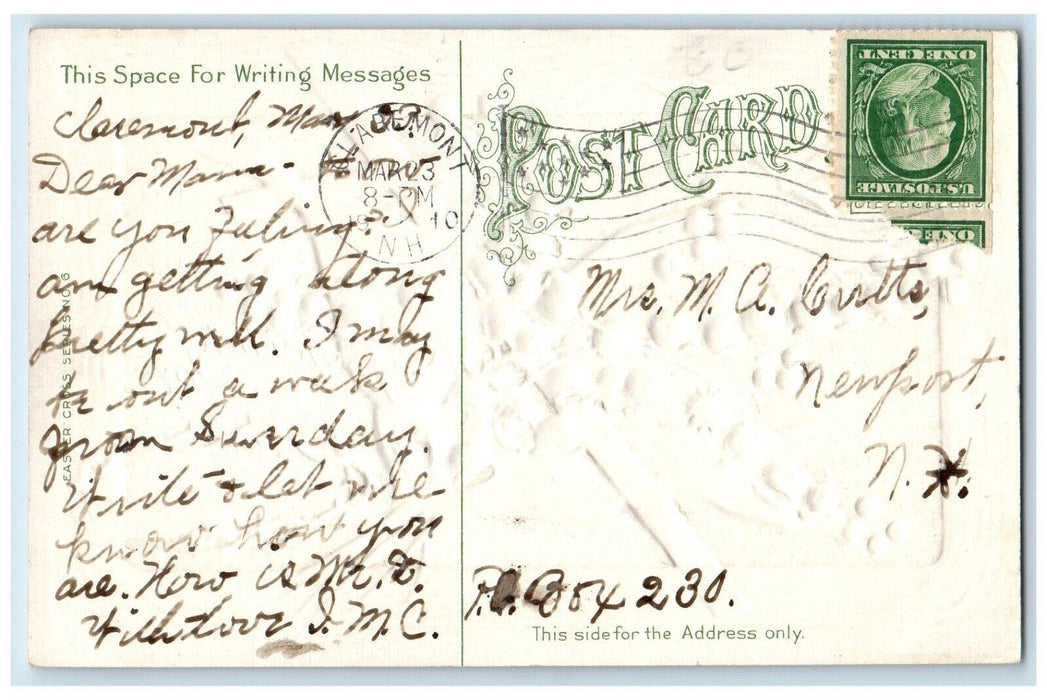 This Space For Writing Messages
Claremont, Mar 23.
Dear Mama - How
are you Feling?
am getting along
pretty well. I may
be out a week
from Suerday.
Write & let me
know how you
are. How is Mr. F.
With Love I. M. C.
EASTER CROSS SERIES NO. 6
CLAREMONT
MAR 23
8-PM
1910
N.H.
POST CARD.
U.S. POSTAGE
ONE CENT
ONE CENT
Mrs. M. A. Curtts,
Newport,
N. H.
P.O. Box 230.
This side for the Address only.